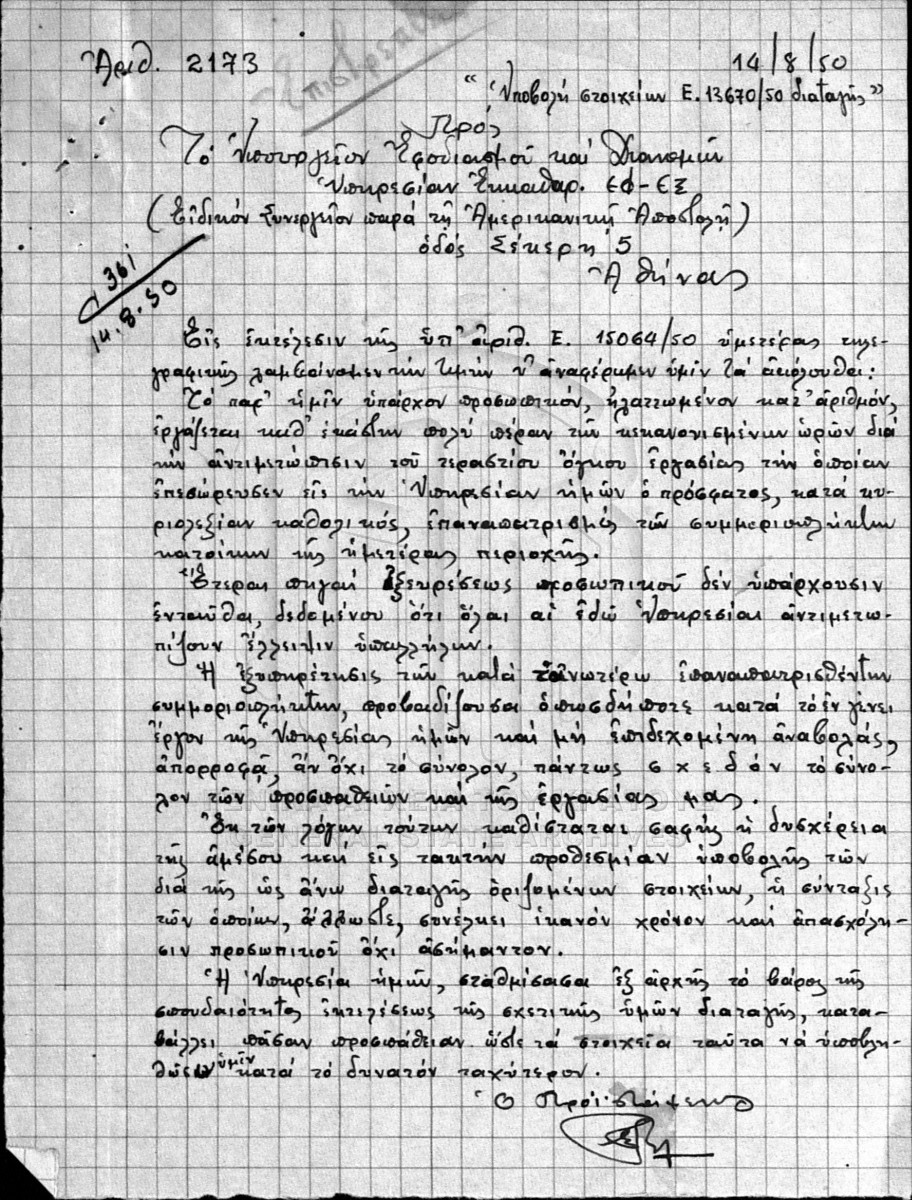 Ἀριθ. 2173
14/8/50
Ἐπιστρέφεται
"Ὑποβολή στοιχείων Ε.13670/50 διαταγῆς"
Πρός
Τό Ὑπουργεῖον Ἐφοδιασμοῦ καί Διανομῶν
Ὑπηρεσίαν Ἐκκαθαρ. ΕΦ-ΕΞ
(Εἰδικόν Συνεργεῖον παρά τῇ Ἀμερικανικῇ Ἀποστολῇ)
ὁδός Σέκερη 5
Ἀθήνας
361
14.8.50
Εἰς ἐκτέλεσιν τῆς ὑπ' ἀριθ. Ε. 15064/50 ὑμετέρας τηλε-
γραφικῆς λαμβάνομεν τήν τιμήν ν' ἀναφέρωμεν ὑμῖν τά ἀκόλουθα:
Τό παρ' ἡμῖν ὑπάρχον προσωπικόν, ἠλαττωμένον κατ' ἀριθμόν,
ἐργάζεται καθ' ἑκάστην πολύ πέραν τῶν κεκανονισμένων ὡρῶν διά
τήν ἀντιμετώπισιν τοῦ τεραστίου ὄγκου ἐργασίας τήν ὁποίαν
ἐπεσώρευσεν εἰς τήν Ὑπηρεσίαν ἡμῶν ὁ πρόσφατος, κατά κυ-
ριολεξίαν καθολικός, ἐπαναπατρισμός τῶν συμμοριοπλήκτων
κατοίκων τῆς ἡμετέρας περιοχῆς.
Ἕτεραι πηγαί ἐξευρέσεως προσωπικοῦ δέν ὑπάρχουσιν
ἐνταῦθα, δεδομένου ὅτι ὅλαι αἱ ἐδῶ Ὑπηρεσίαι ἀντιμετω-
πίζουν ἔλλειψιν ὑπαλλήλων.
Ἡ ἐξυπηρέτησις τῶν κατά τἀνωτέρω ἐπαναπατρισθέντων
συμμοριοπλήκτων, προβαδίζουσα ὁπωσδήποτε κατά τό ἐν γένει
ἔργον τῆς Ὑπηρεσίας ἡμῶν καί μή ἐπιδεχομένη ἀναβολάς,
ἀπορροφᾷ, ἄν ὄχι τό σύνολον, πάντως σ χ ε δ ό ν τό σύνο-
λον τῶν προσπαθειῶν καί τῆς ἐργασίας μας.
Ἐκ τῶν λόγων τούτων καθίσταται σαφής ἡ δυσχέρεια
τῆς ἀμέσου καί εἰς τακτήν προθεσμίαν ὑποβολῆς τῶν
διά τῆς ὡς ἄνω διαταγῆς ὁριζομένων στοιχείων, ἡ σύνταξις
τῶν ὁποίων, ἄλλωστε, συνέλκει ἱκανόν χρόνον καί ἀπασχόλη-
σιν προσωπικοῦ ὄχι ἀσήμαντον.
Ἡ Ὑπηρεσία ἡμῶν, σταθμίσασα ἐξ ἀρχῆς τό βάρος τῆς
σπουδαιότητος ἐκτελέσεως τῆς σχετικῆς ὑμῶν διαταγῆς, κατα-
βάλλει πᾶσαν προσπάθειαν ὥστε τά στοιχεῖα ταῦτα νά ὑποβλη-
θῶσιν ὑμῖν κατά τό δυνατόν ταχύτερον.
Ὁ Προϊστάμενος